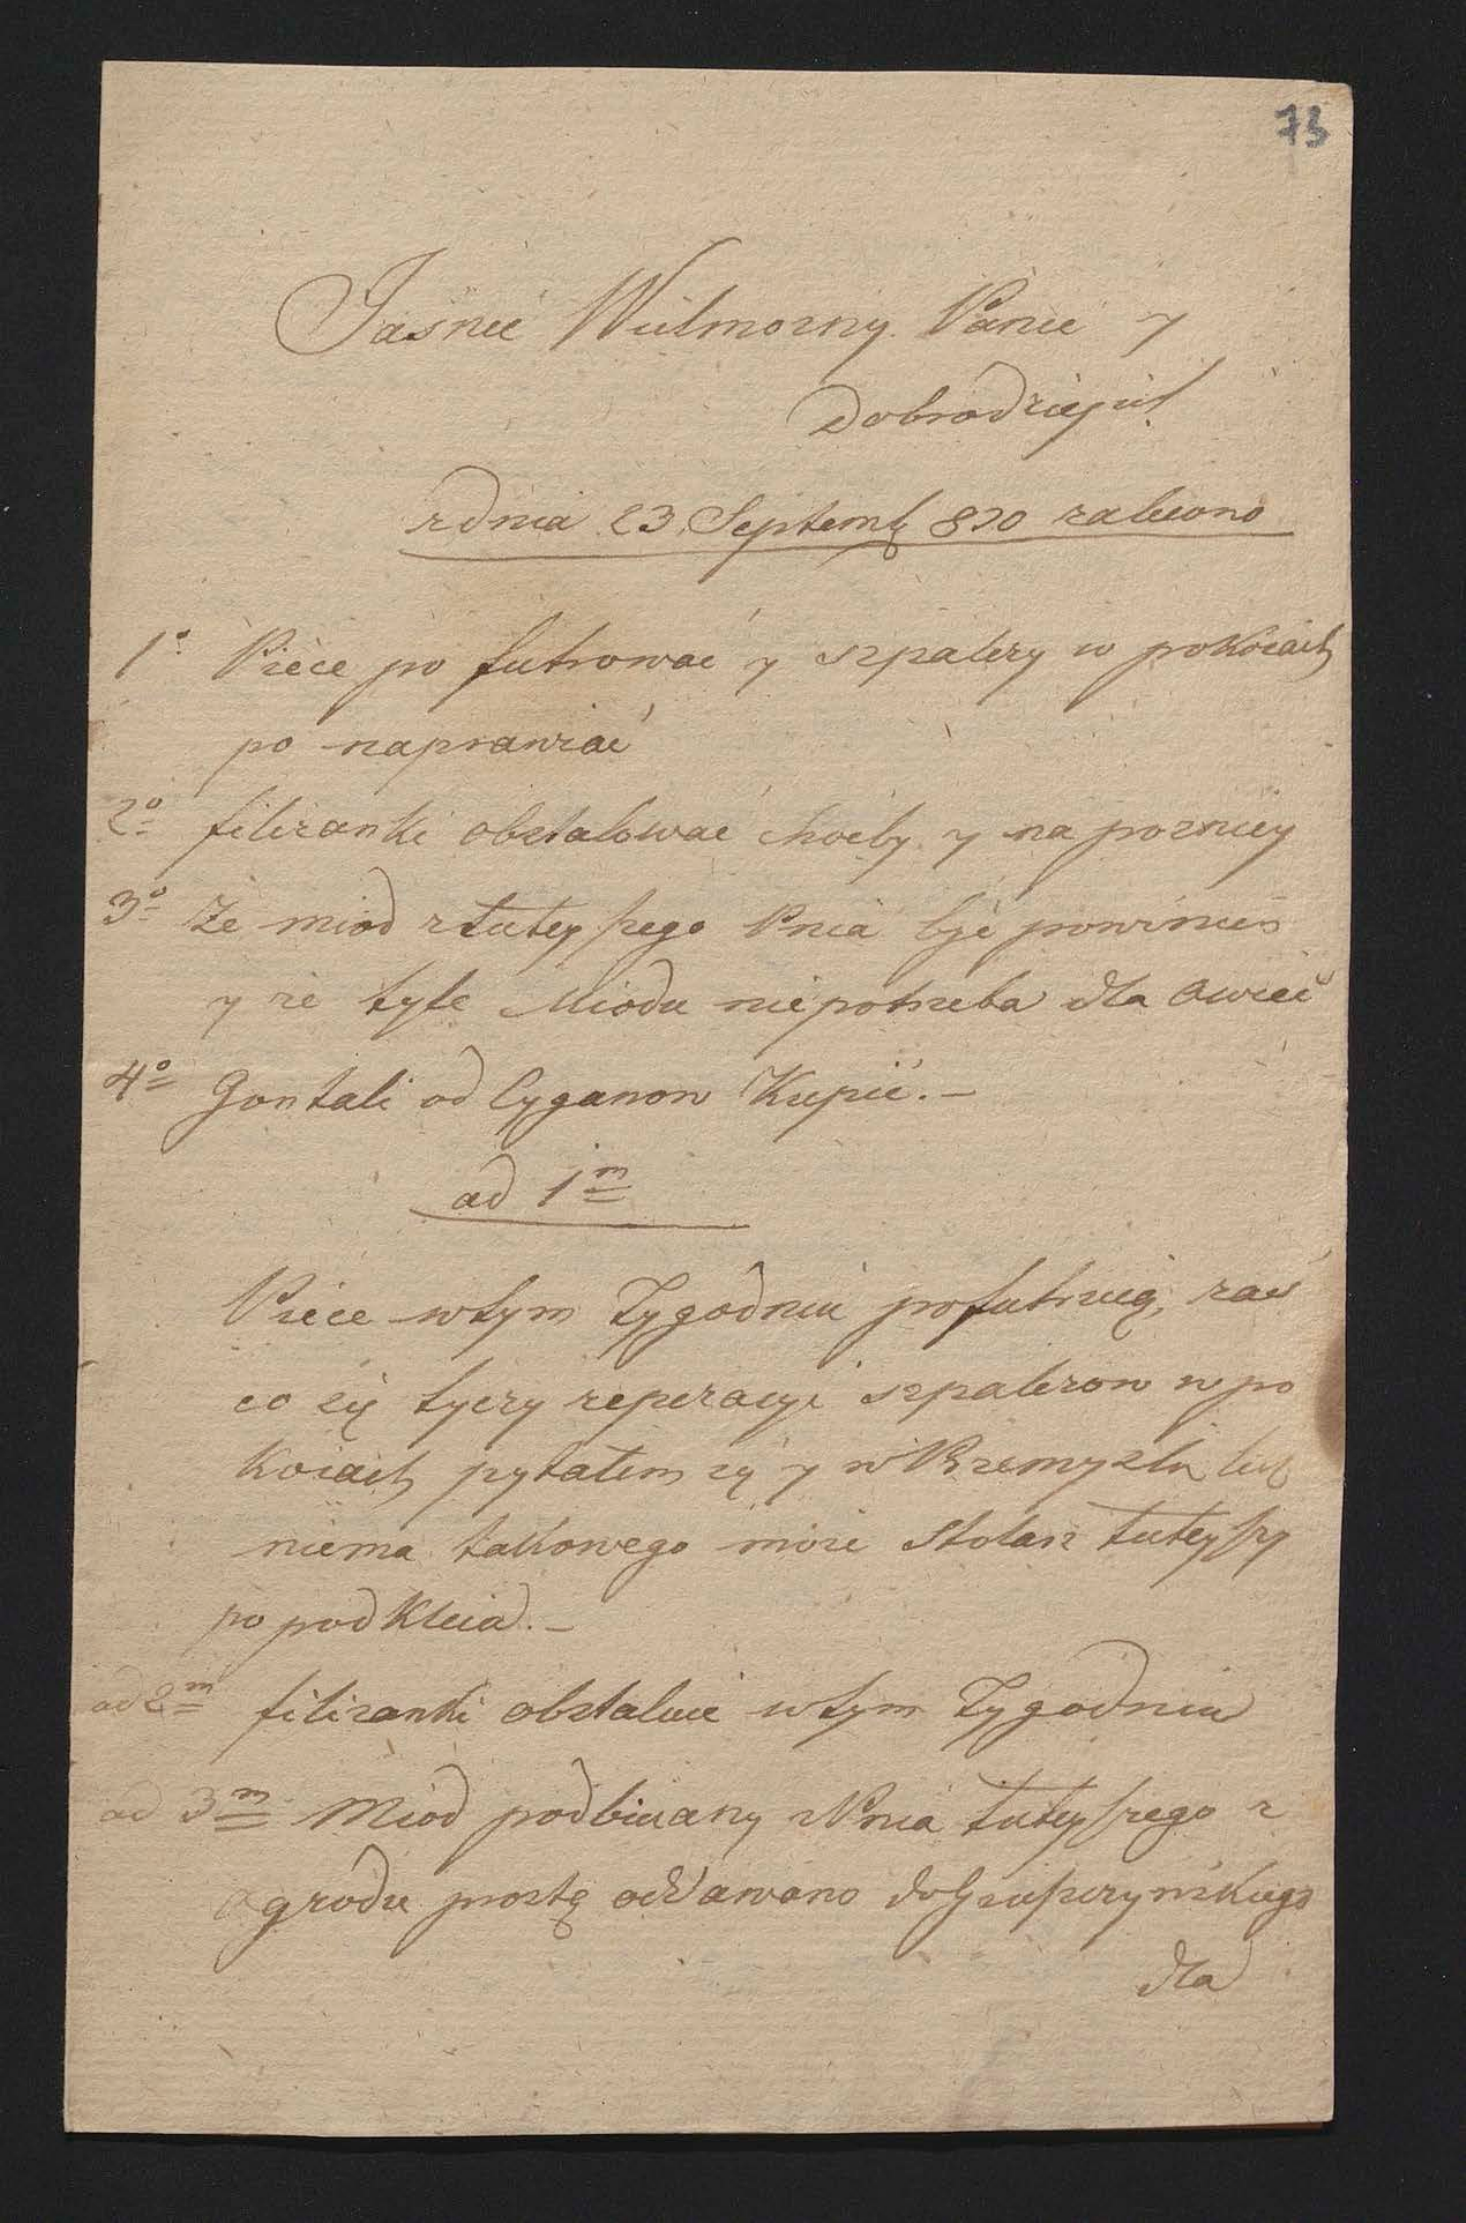 73
Jasnie Wielmozny Panie y
Dobrodzieju!
zdnia 23 Septemb 820 zalecono
1o Piece po futrowac y szpalery w pokoiach
po naprawiać
2o filizanki obstalować choćby y na pozniey
3o że miod z tuteyszego Pnia być powinien
y że tyle Miodu niepotrzeba dla Owiec
4o Gontali od Cyganow Kupić. –
ad 1m
Piece wtym Tygodniu pofutruią, zaś
co się tyczy reperacyi szpalerow w po
koiach pytałem się y w Przemyslu lecz
niema takowego może Stolarz tuteyszy
po podkleia. –
ad 2m filizanki obstaluie wtym Tygodniu
ad 3m Miod podbierany z Pnia tuteyszego z
Ogrodu prostę oddawano
dla